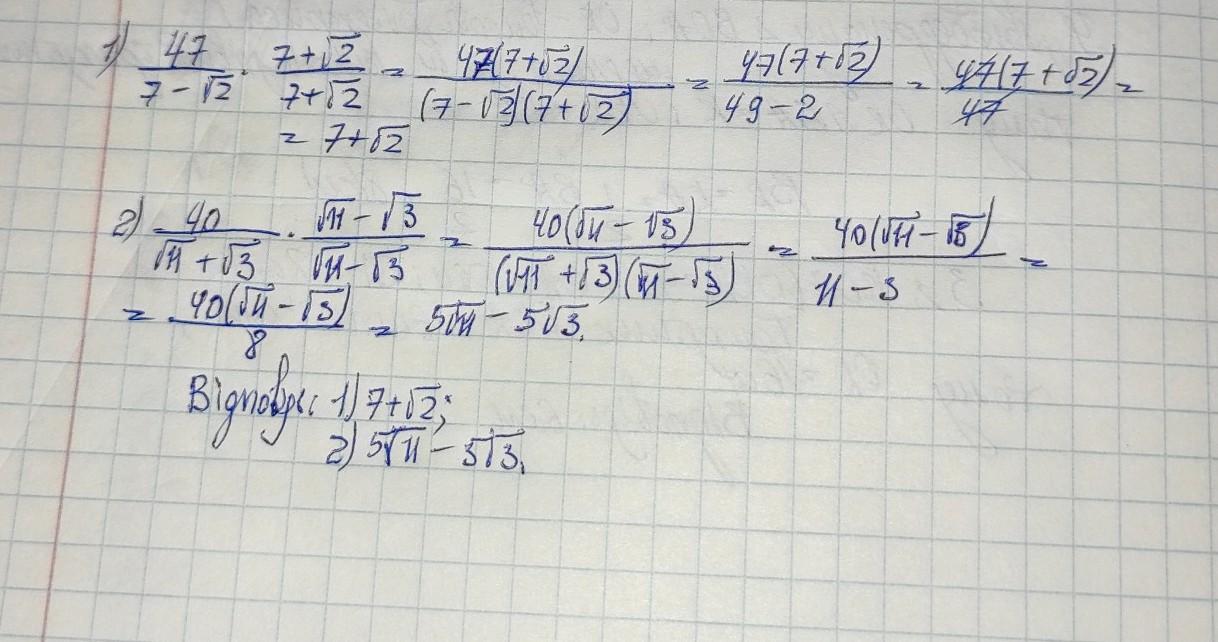 1) 47/(7-√2) · (7+√2)/(7+√2) = 47(7+√2)/((7-√2)(7+√2)) = 47(7+√2)/(49-2) = 47(7+√2)/47 =
= 7+√2
2) 40/(√11+√3) · (√11-√3)/(√11-√3) = 40(√11-√3)/((√11+√3)(√11-√3)) = 40(√11-√3)/(11-3) =
= 40(√11-√3)/8 = 5√11-5√3.
1) 7+√2;
2) 5√11-5√3.